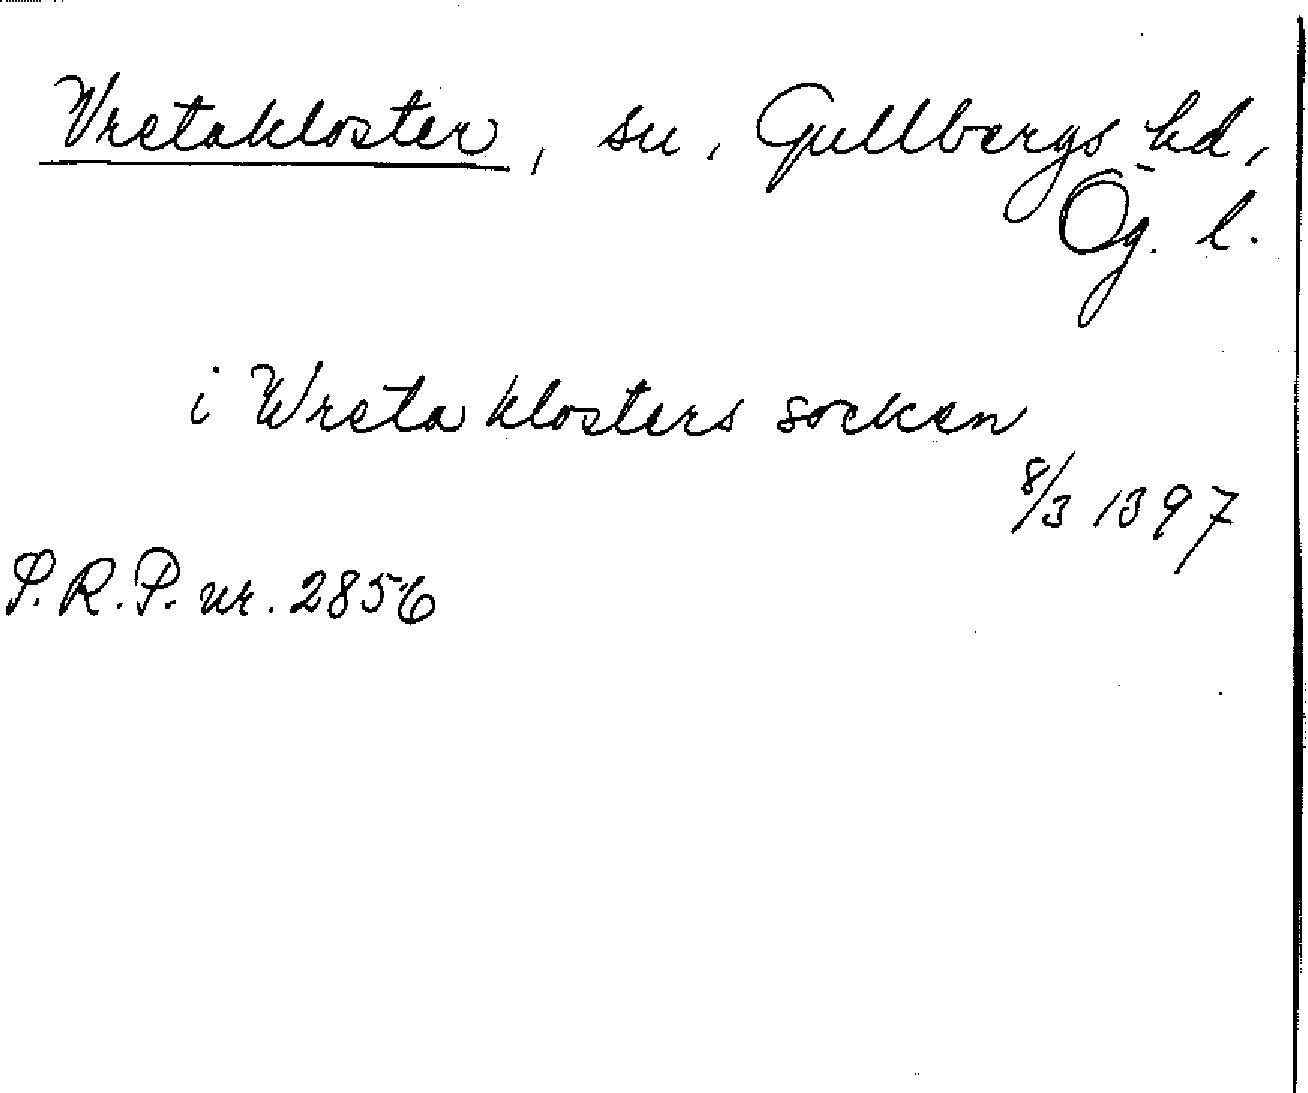 Vretakloster, sn, Gullbergs hd,
Ög. l.
i Wreta klosters socken
8/3 1397
P.R.P. nr. 2856